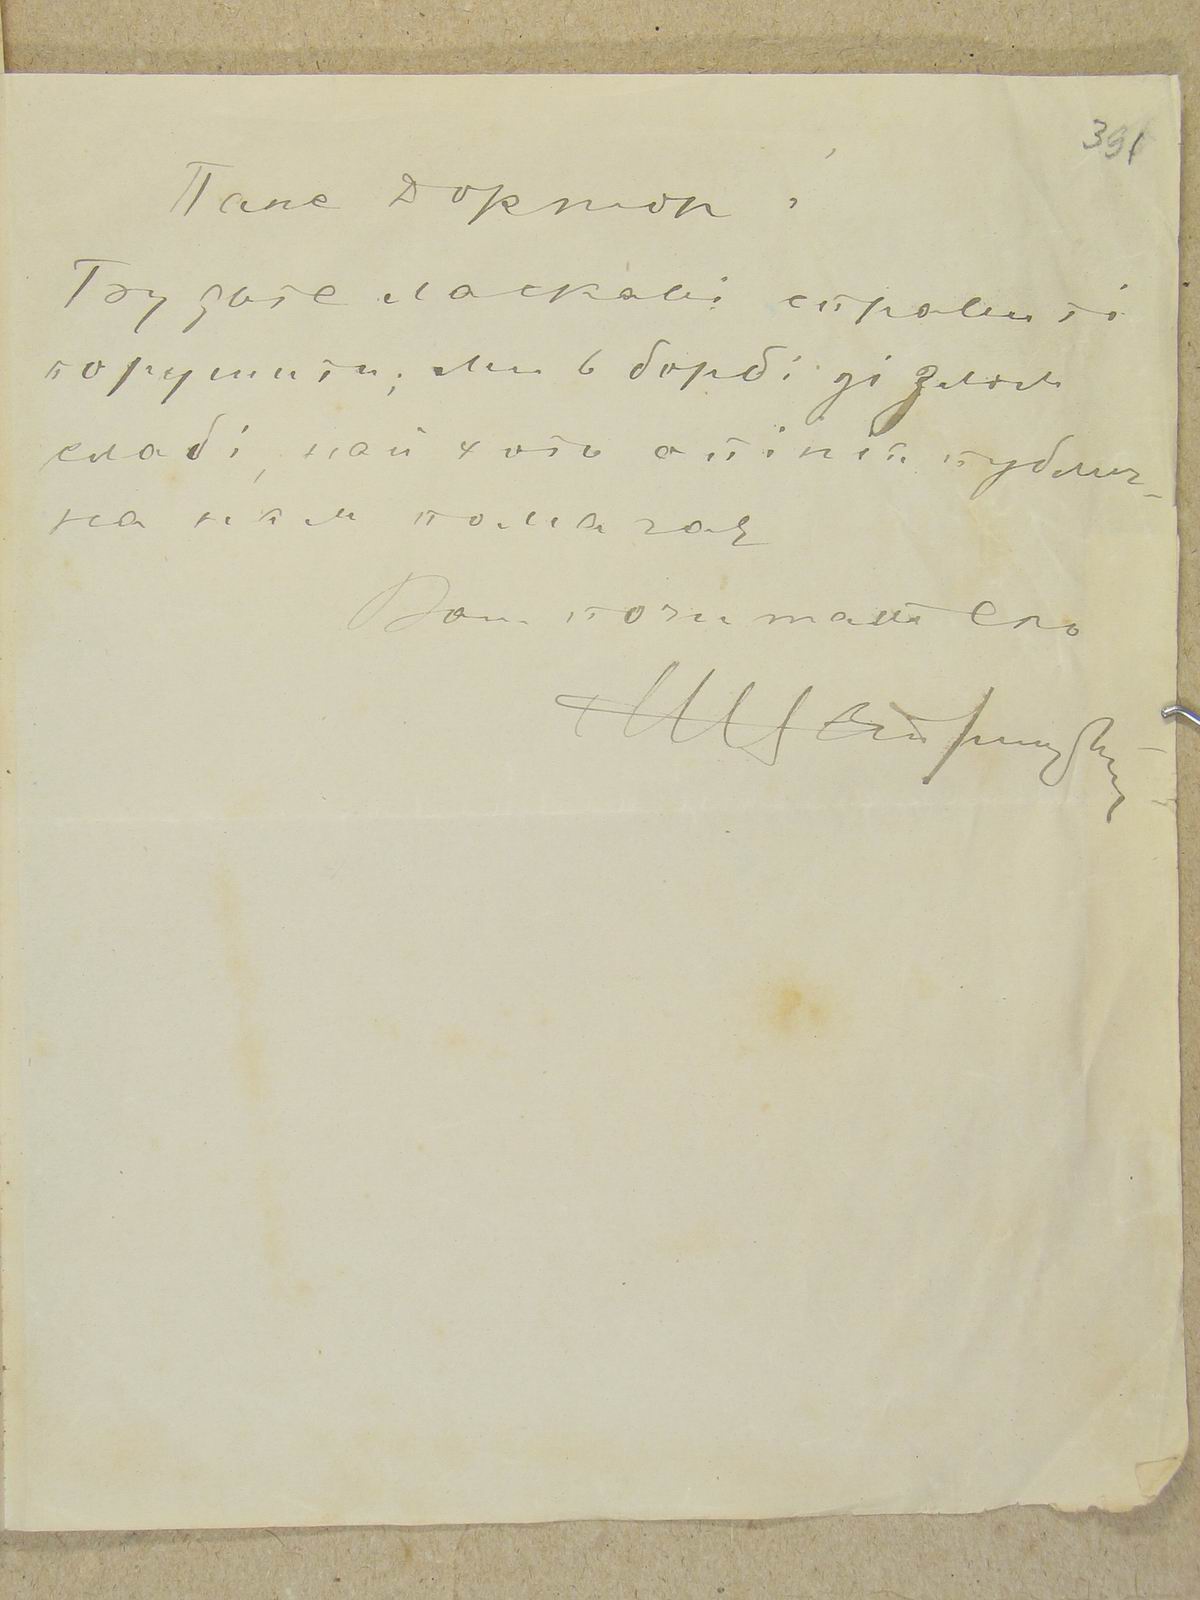 391
Пане Доктор!
Будьте ласкаві справи ті
порушити; ми в борбі зі злом
слабі, най хоть опінія публич-
на нам помагає
Ваш почитатель